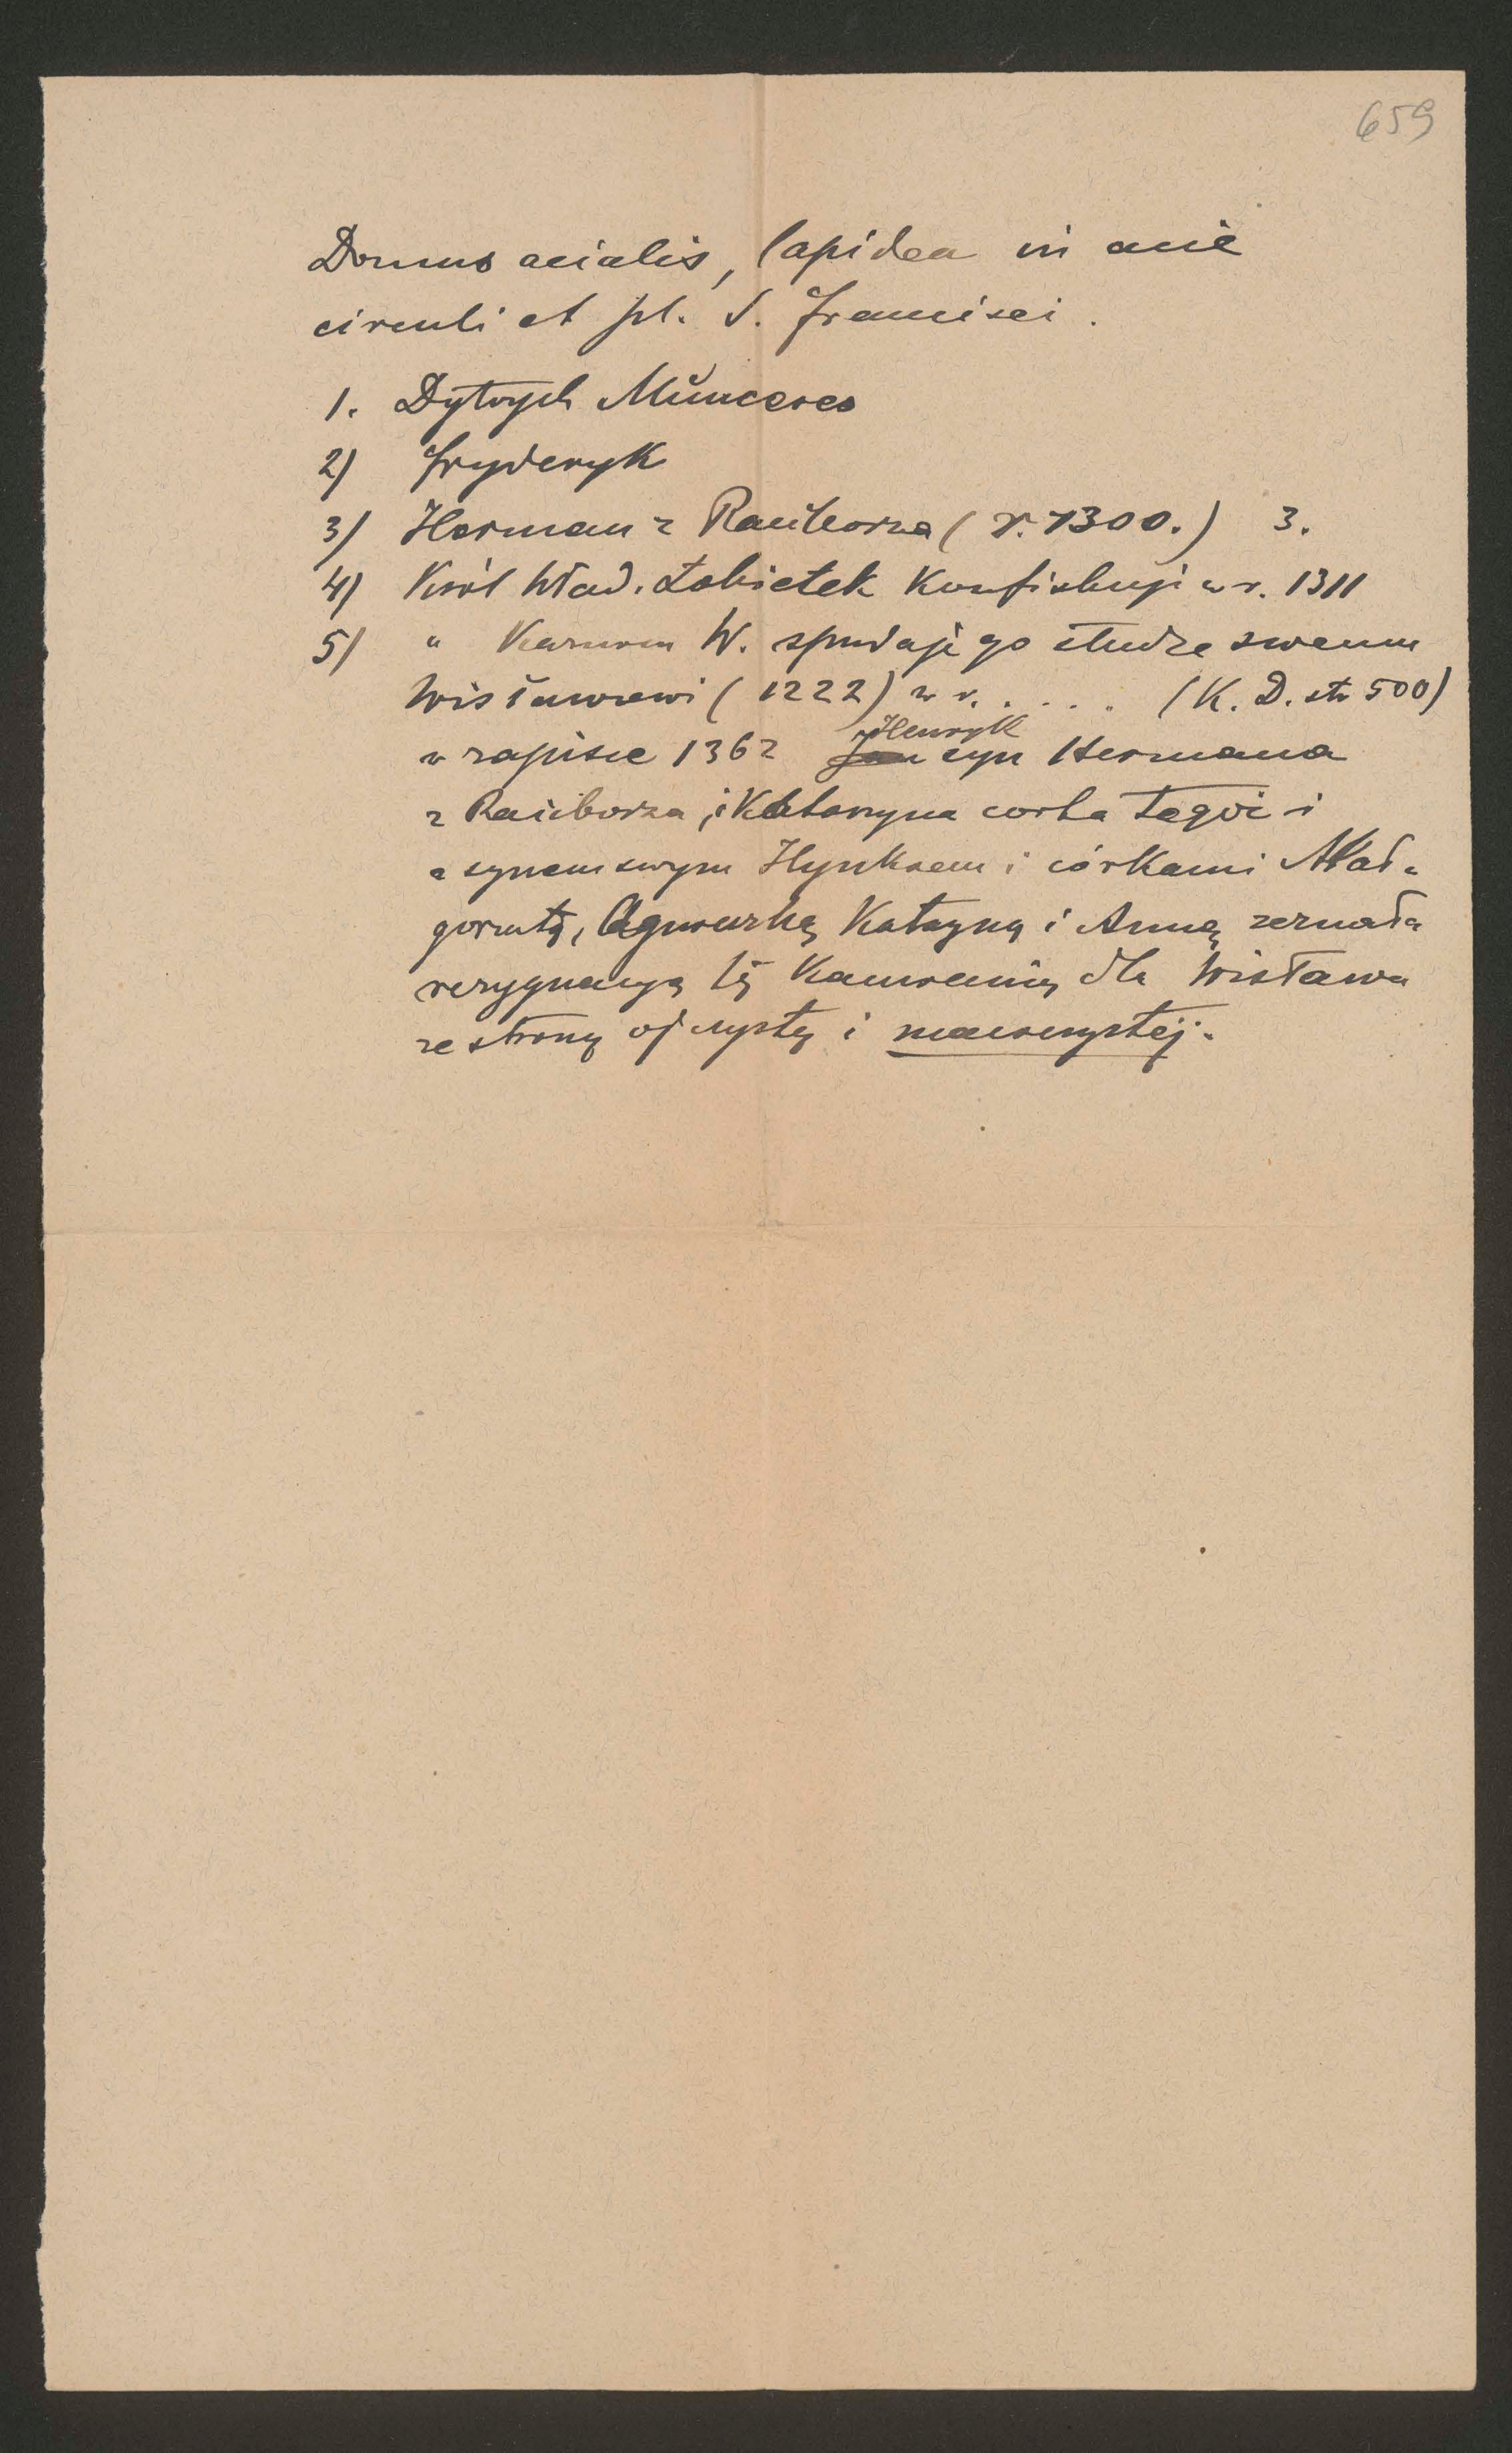 659
Domus acialis, lapidea in acie
circuli et pl. S. Francisci.
1. Dytrych Müncerco
2) Fryderyk
3) Herman z Raciborza (r. 1300.) 3.
4) Król Wład. Łokietek Konfiskuje w r. 1311
5) " Kazimierz W. sprzedaje go słudze swemu
Wisławowi (1222) w r. . . . . (K. D. str 500)
w zapisie 1362 Henryk syn Hermana
z Raciborza, i Katarzyna corka tegoż i
z synem swym Hynkiem i córkami Mał-
gorzatą, Agnieszką Katarzyną i Anną zeznała
rezygnacyą tę Kamienicę dla Wisława
ze strony ojczystej i macierzystej.